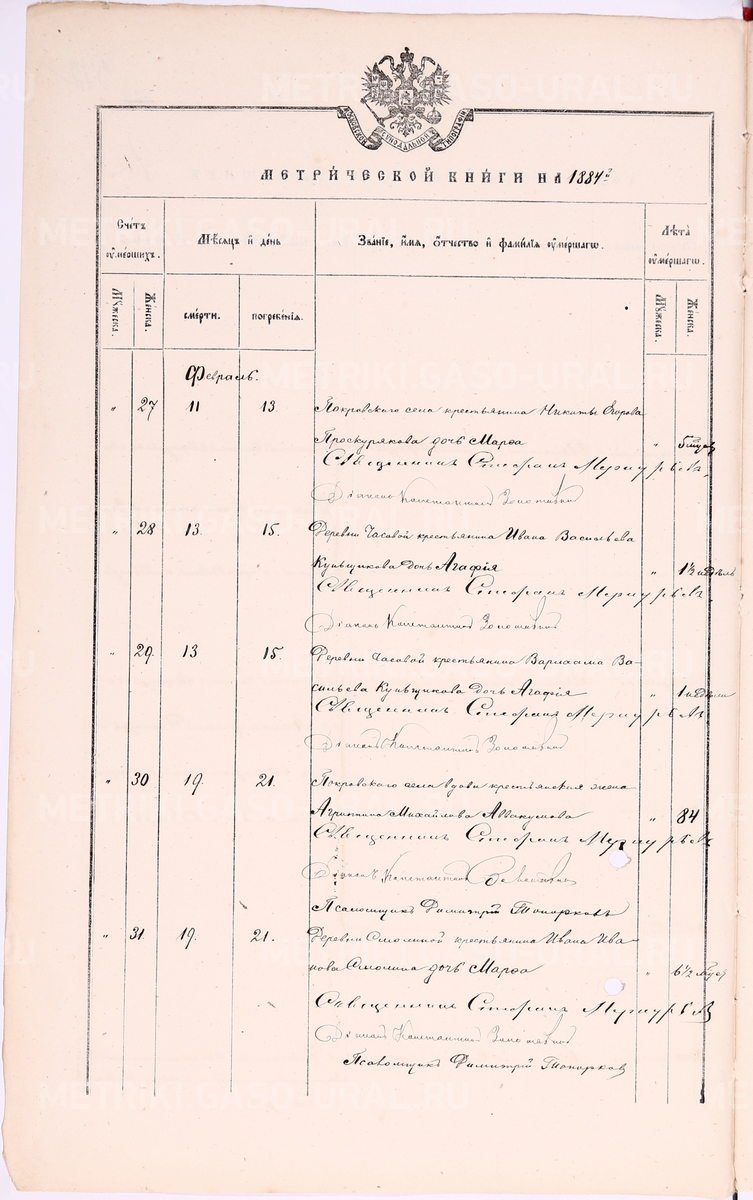 МОСКОВСКОЙ СѴНОДАЛЬНОЙ ТИПОГРАФІИ
МЕТРИЧЕСКОЙ КНИГИ НА 1884 г
Счетъ умершихъ.
Мѣсяцъ и день
Званіе, имя, отчество и фамилія умершаго.
Лѣта умершаго.
Мужеска.
Женска.
смерти.
погребенія.
Мужеска.
Женска.
Февраль.
" 27 11 13. Покровского села крестьянина Никиты Егорова
Проскурякова дочь Марѳа "
Священникъ Стефанъ Меркурьевъ
Діаконъ Константинъ
" 28 13. 15. Деревни Часовой крестьянина Ивана Васильева
Кунщикова дочь Агафія " 1½ недѣль
Священникъ Стефанъ Меркурьевъ
Діаконъ Константинъ
" 29. 13 15. Деревни Часовой крестьянина Варлаама Ва-
сильева Кунщикова дочь Агафія " 1 недѣли
Священникъ Стефанъ Меркурьевъ
Діаконъ Константинъ
" 30 19. 21. Покровского села вдова крестьянская жена
Агриппина Михайлова Аввакумова " 84
Священникъ Стефанъ Меркурьевъ
Діаконъ Константинъ
Псаломщикъ Димитрій Топорковъ
" 31. 19. 21. Деревни Смолиной крестьянина Ивана Ива-
нова Смолина дочь Марѳа " 6½
Священникъ Стефанъ Меркурьевъ
Діаконъ Константинъ
Псаломщикъ Димитрій Топорковъ
METRIKI.GASO-URAL.RU